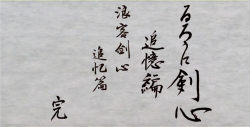 るろうに剣心
追憶編
浪客剣心
追忆篇
完